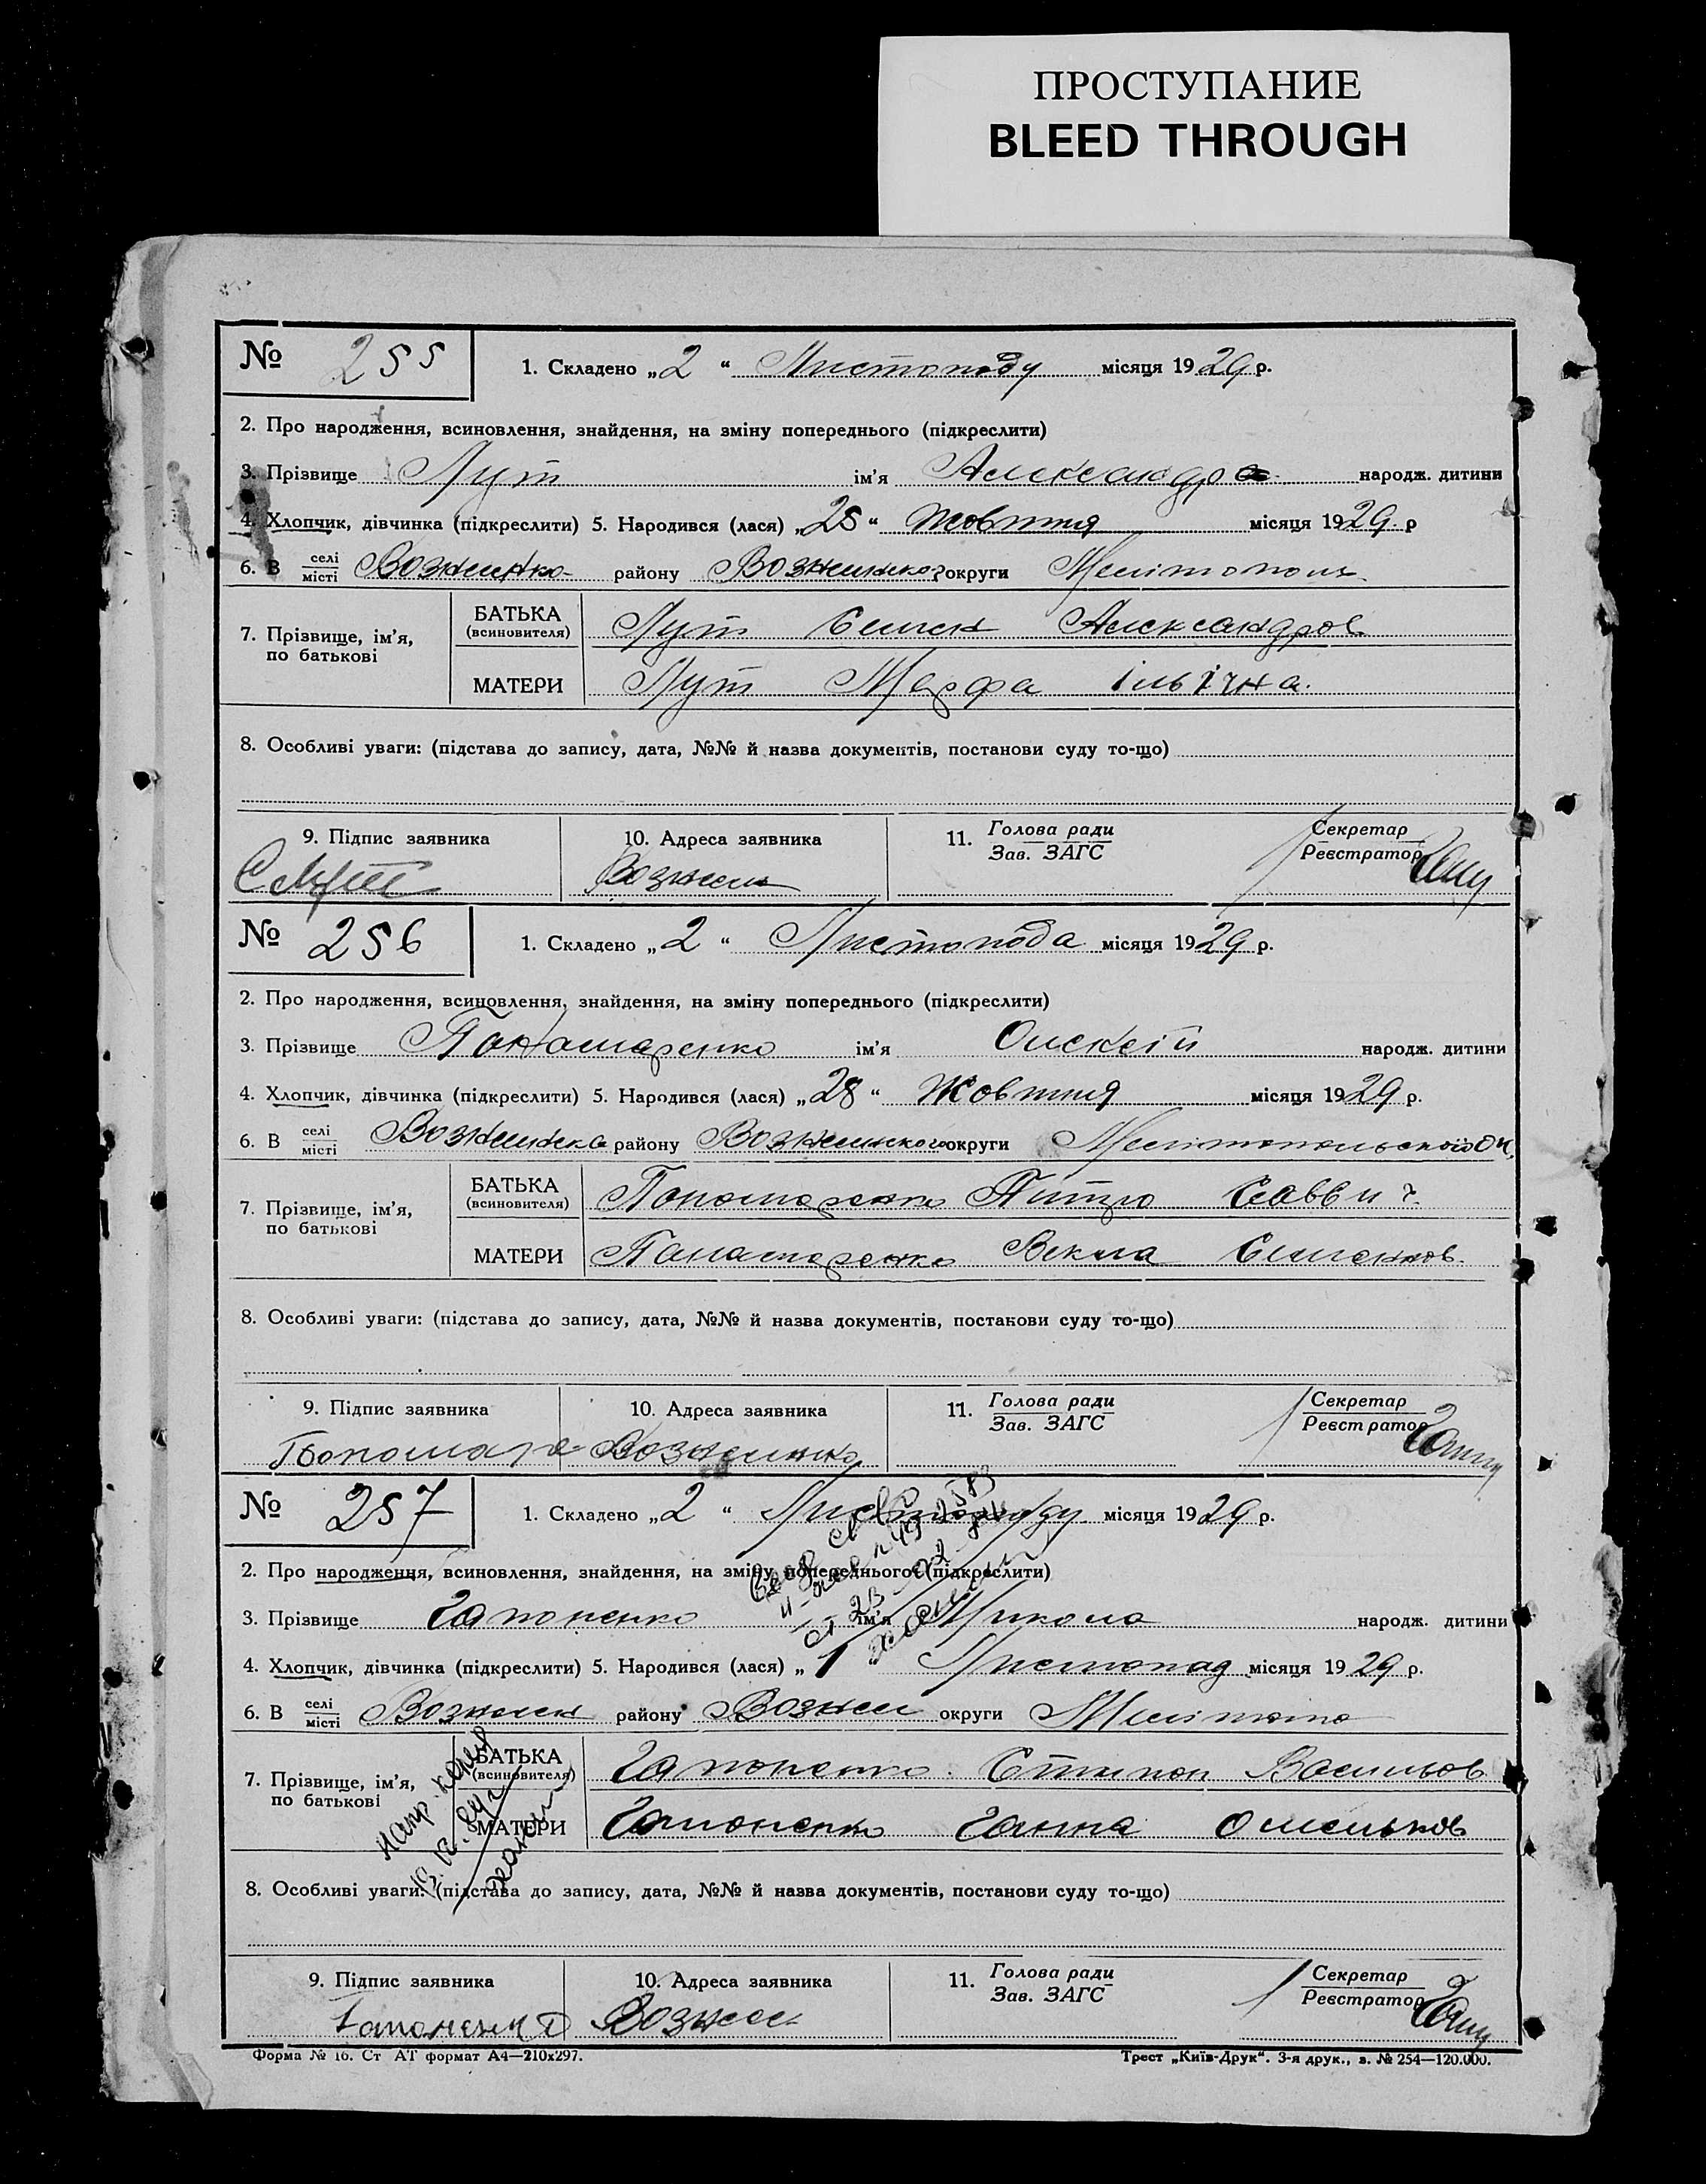 ПРОСТУПАНИЕ
BLEED THROUGH
№ 255 1. Складено „2“ Листопаду місяця 1929 р.
2. Про народження, всиновлення, знайдення, на зміну попереднього (підкреслити)
3. Прізвище Лут ім'я Александра народж. дитини
4. Хлопчик, дівчинка (підкреслити) 5. Народився (лася) „25“ Жовтня місяця 1929. р
6. В селі місті Вознесенко- району Вознесенског округи Мелітополь
7. Прізвище, ім'я, по батькові БАТЬКА (всиновителя) Лут Семен Александров
МАТЕРИ Лут Марфа Ільїчна.
8. Особливі уваги: (підстава до запису, дата, №№ й назва документів, постанови суду то-що)
9. Підпис заявника 10. Адреса заявника 11. Голова ради Зав. ЗАГС Секретар Реєстратор
С Лут Вознесен
№ 256 1. Складено „2“ Листопада місяця 1929 р.
2. Про народження, всиновлення, знайдення, на зміну попереднього (підкреслити)
3. Прізвище Понамаренко ім'я Олексій народж. дитини
4. Хлопчик, дівчинка (підкреслити) 5. Народився (лася) „28“ Жовтня місяця 1929 р.
6. В селі місті Вознесенка району Вознесенского округи Мелітопольской ок.
7. Прізвище, ім'я, по батькові БАТЬКА (всиновителя) Пономаренко Дмитро Саввич
МАТЕРИ Панамаренко Векла Семенов.
8. Особливі уваги: (підстава до запису, дата, №№ й назва документів, постанови суду то-що)
9. Підпис заявника 10. Адреса заявника 11. Голова ради Зав. ЗАГС Секретар Реєстратор
Пономаре Вознесенка
№ 257 1. Складено „2“ Листопаду місяця 1929 р.
2. Про народження, всиновлення, знайдення, на зміну попереднього (підкреслити)
3. Прізвище Гапоненко ім'я Микола народж. дитини
4. Хлопчик, дівчинка (підкреслити) 5. Народився (лася) „1“ Листопад місяця 1929 р.
6. В селі місті Вознесен району Вознесе округи Мелітопо
7. Прізвище, ім'я, по батькові БАТЬКА (всиновителя) Гапоненко Степан Васильов
МАТЕРИ Гапоненко Ганна Омельков
8. Особливі уваги: (підстава до запису, дата, №№ й назва документів, постанови суду то-що)
9. Підпис заявника 10. Адреса заявника 11. Голова ради Зав. ЗАГС Секретар Реєстратор
Гапоненко Вознесе
Форма № 16. Ст АТ формат А4—210х297. Трест „Київ-Друк“. 3-я друк., з. № 254—120.000.